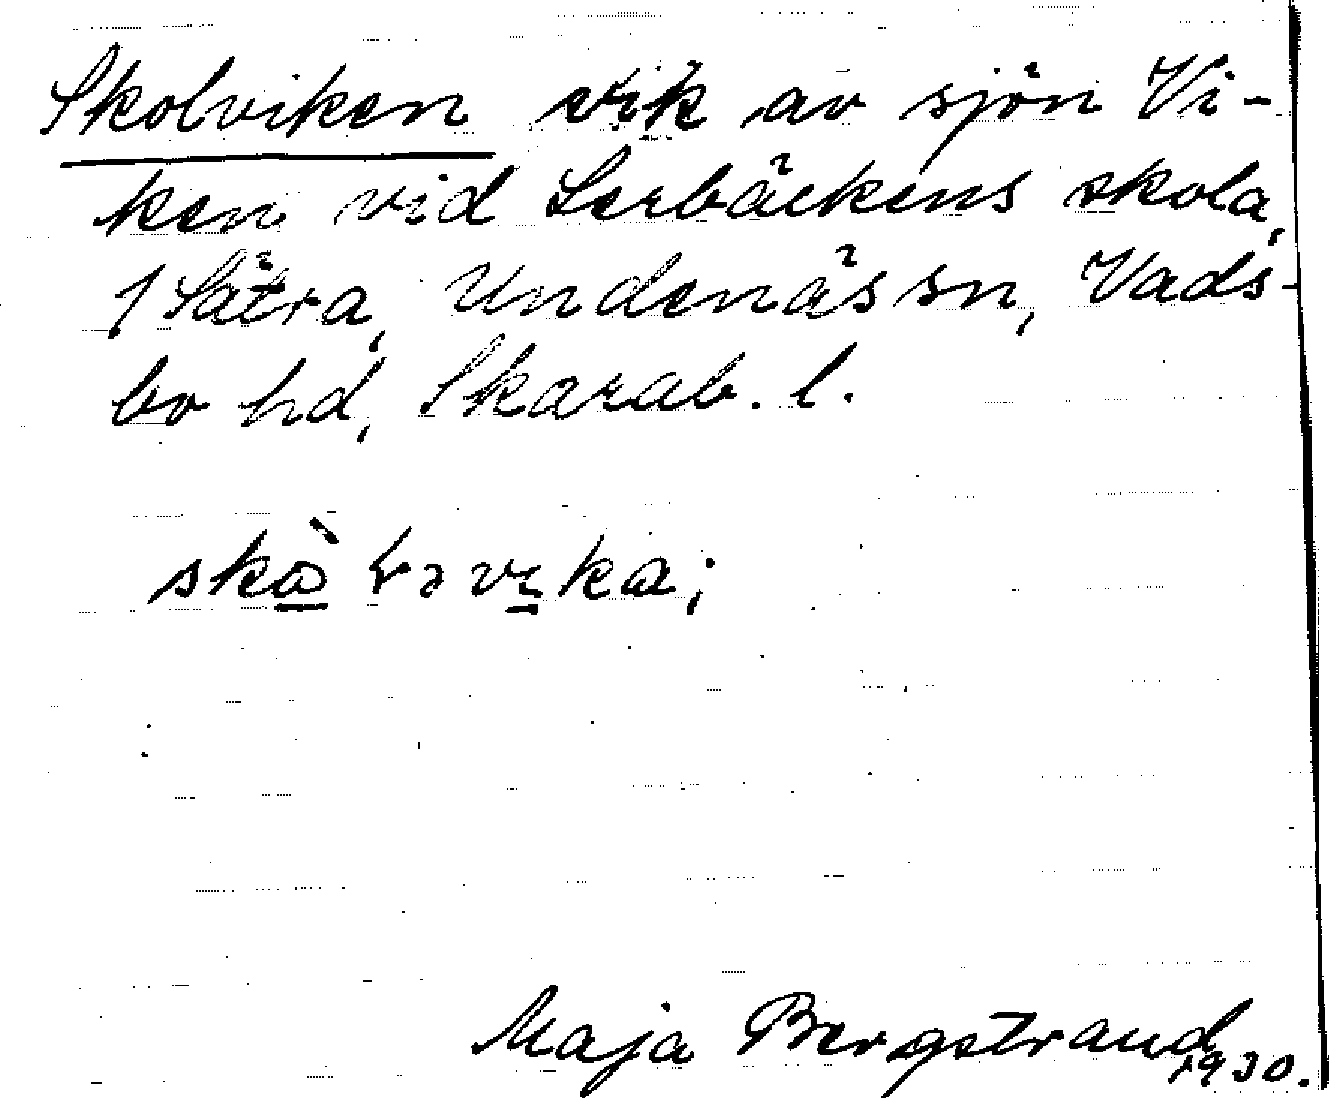 Skolviken vik av sjön Vi-
ken vid Lerbäckens skola,
1 Sätra, Undenäs sn, Vads-
bo hd, Skarab. l.
Maja Bergstrand
1930.